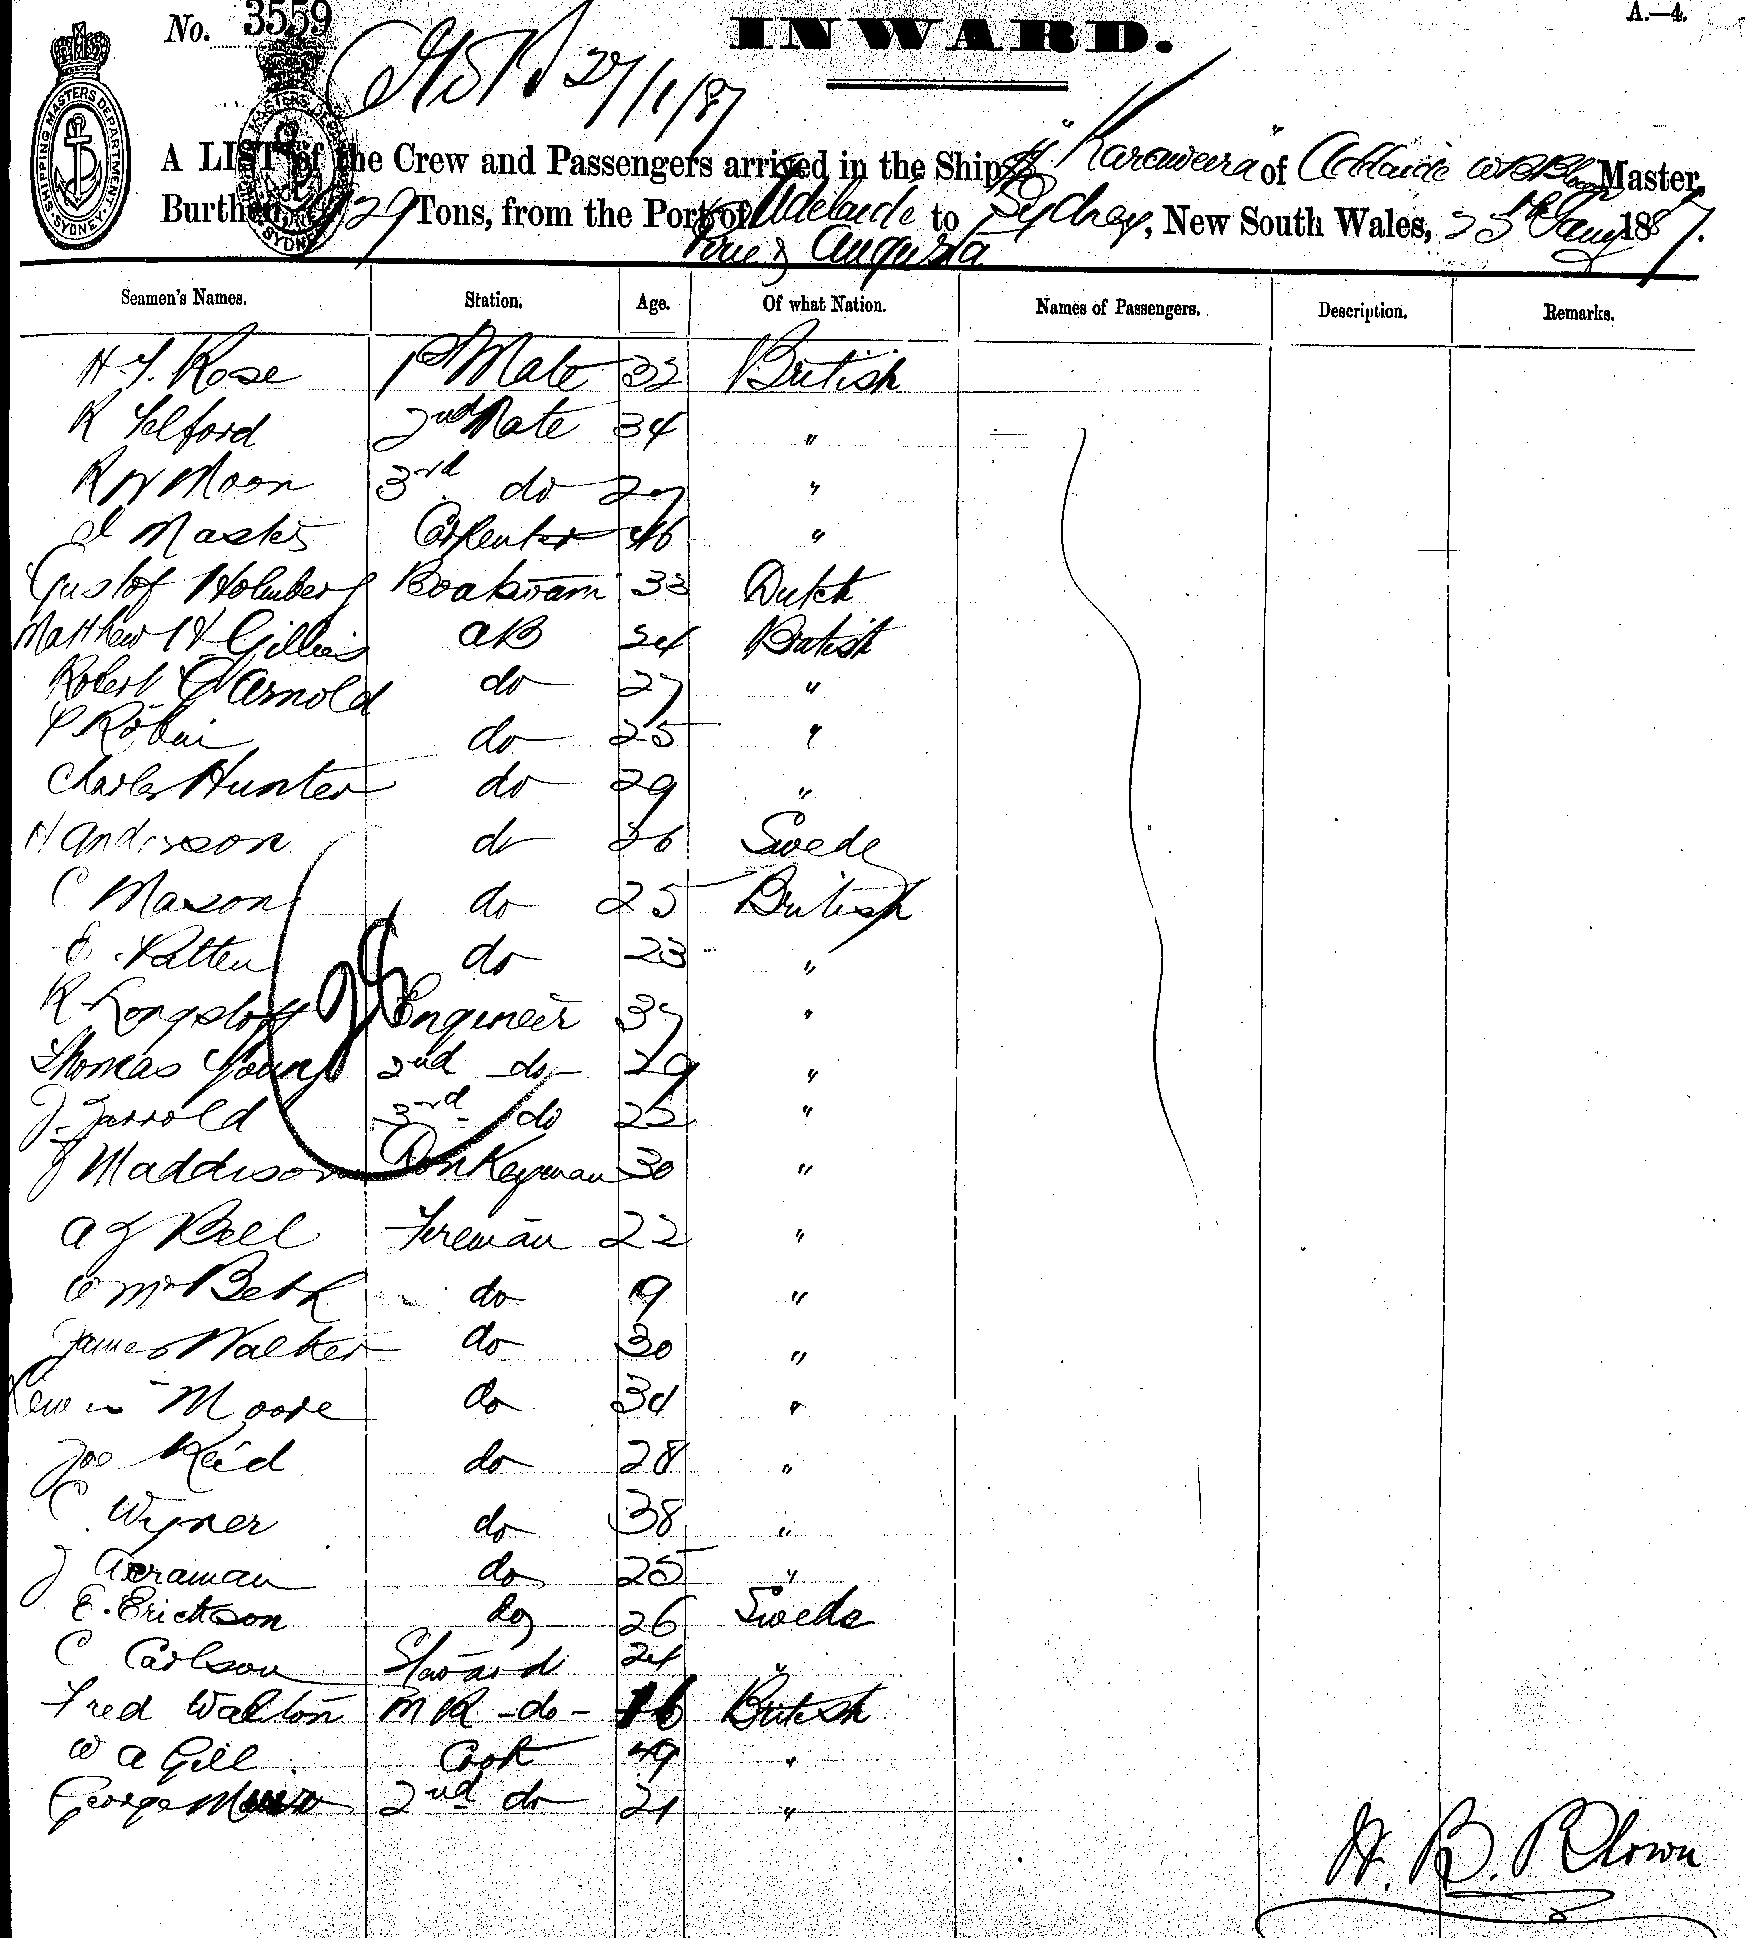 No. 3559
INWARD.
A.—4.
27/1/87
SHIPPING MASTERS DEPARTMENT SYDNEY
A LIST of the Crew and Passengers arrived in the Ship "Karaweera" of Adelaide W B Brown Master,
Burthen 29 Tons, from the Port of Adelaide to Sydney, New South Wales, 25th Jany 1887.
Pirie & Augusta
Seamen's Names. Station. Age. Of what Nation. Names of Passengers. Description. Remarks.
H. Y. Rose 1st Mate 32 British
R Telford 2nd Mate 34 "
R W Moon 3rd do 27 "
Masters Carpenter 46 "
Gustof Holmberg Boatswain 33 Dutch
Matthew H Gillies AB 24 British
Robert G Arnold do 27 "
P Robin do 25 "
Charles Hunter do 29 "
H Anderson do 26 Swede
C Mason do 25 British
E. Patten do 23 "
R Longstaff Engineer 37 "
Thomas Young 2nd do 29 "
J. Jarrold 3rd do 22 "
J Maddison Donkeyman 30 "
A J Bell Fireman 22 "
W McBeth do 19 "
James Walker do 30 "
Moore do 34 "
Joe Reid do 28 "
C Wyner do 38 "
J do 25 "
E. Erickson do 26 Swede
C Carlson Steward 24 "
Fred Walton M R do 16 British
W A Gill Cook 49 "
George Munro 2nd do 21 "
W. B. Brown